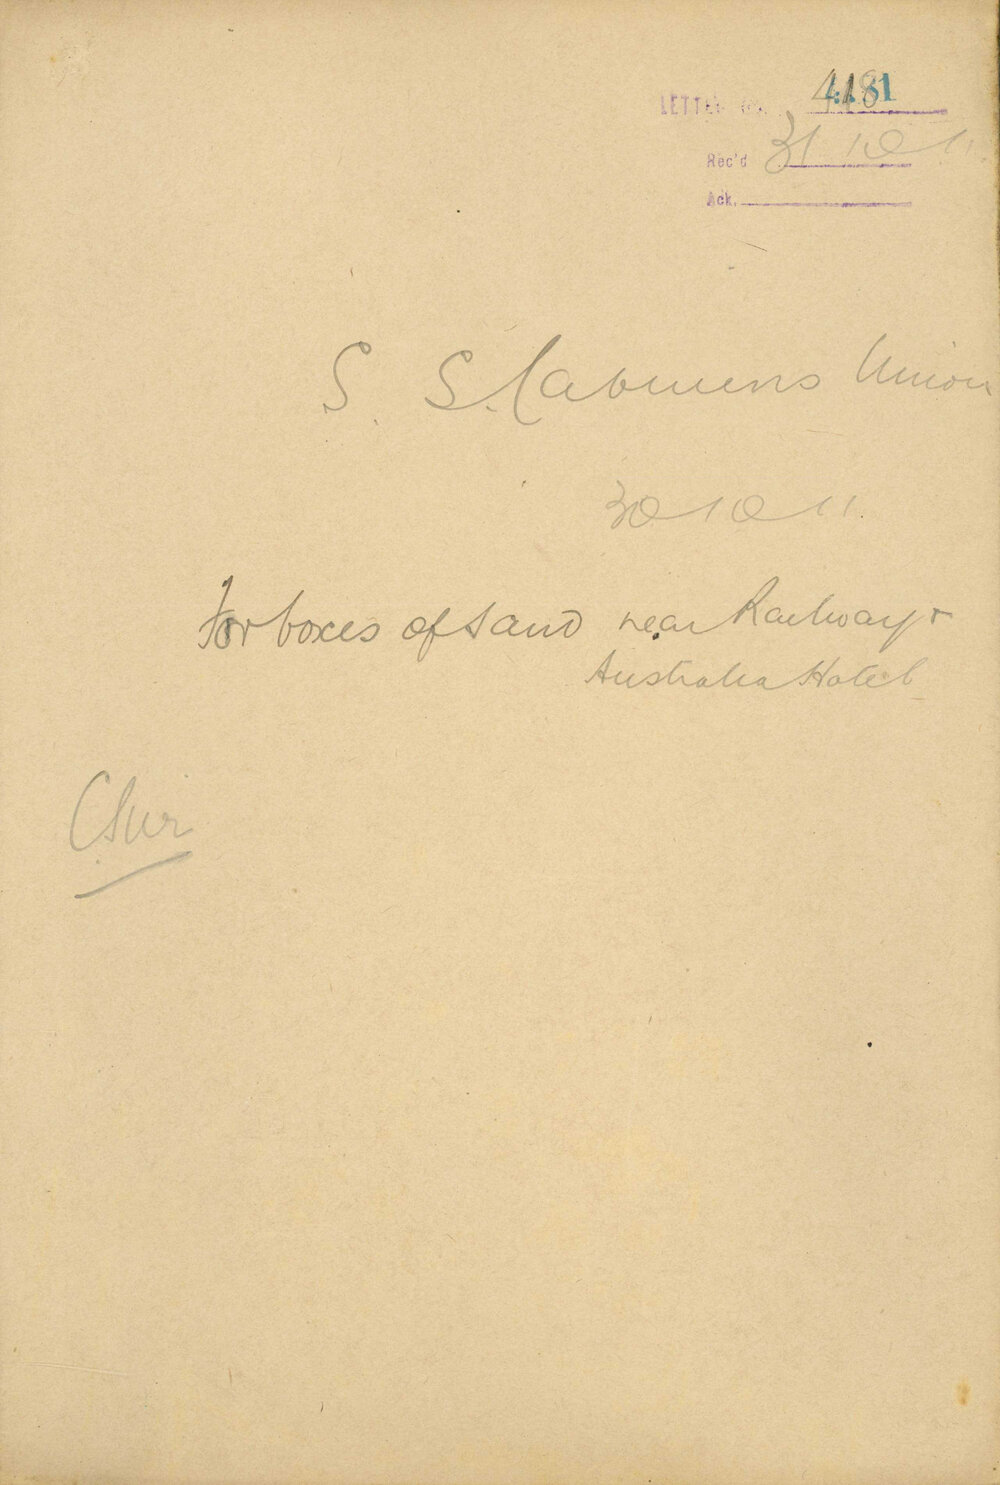 LETTER No. 4181
Rec'd 31 10 11
Ack.
S. S. Cabmens Union
30 10 11.
For boxes of sand near Railway &
Australia Hotel